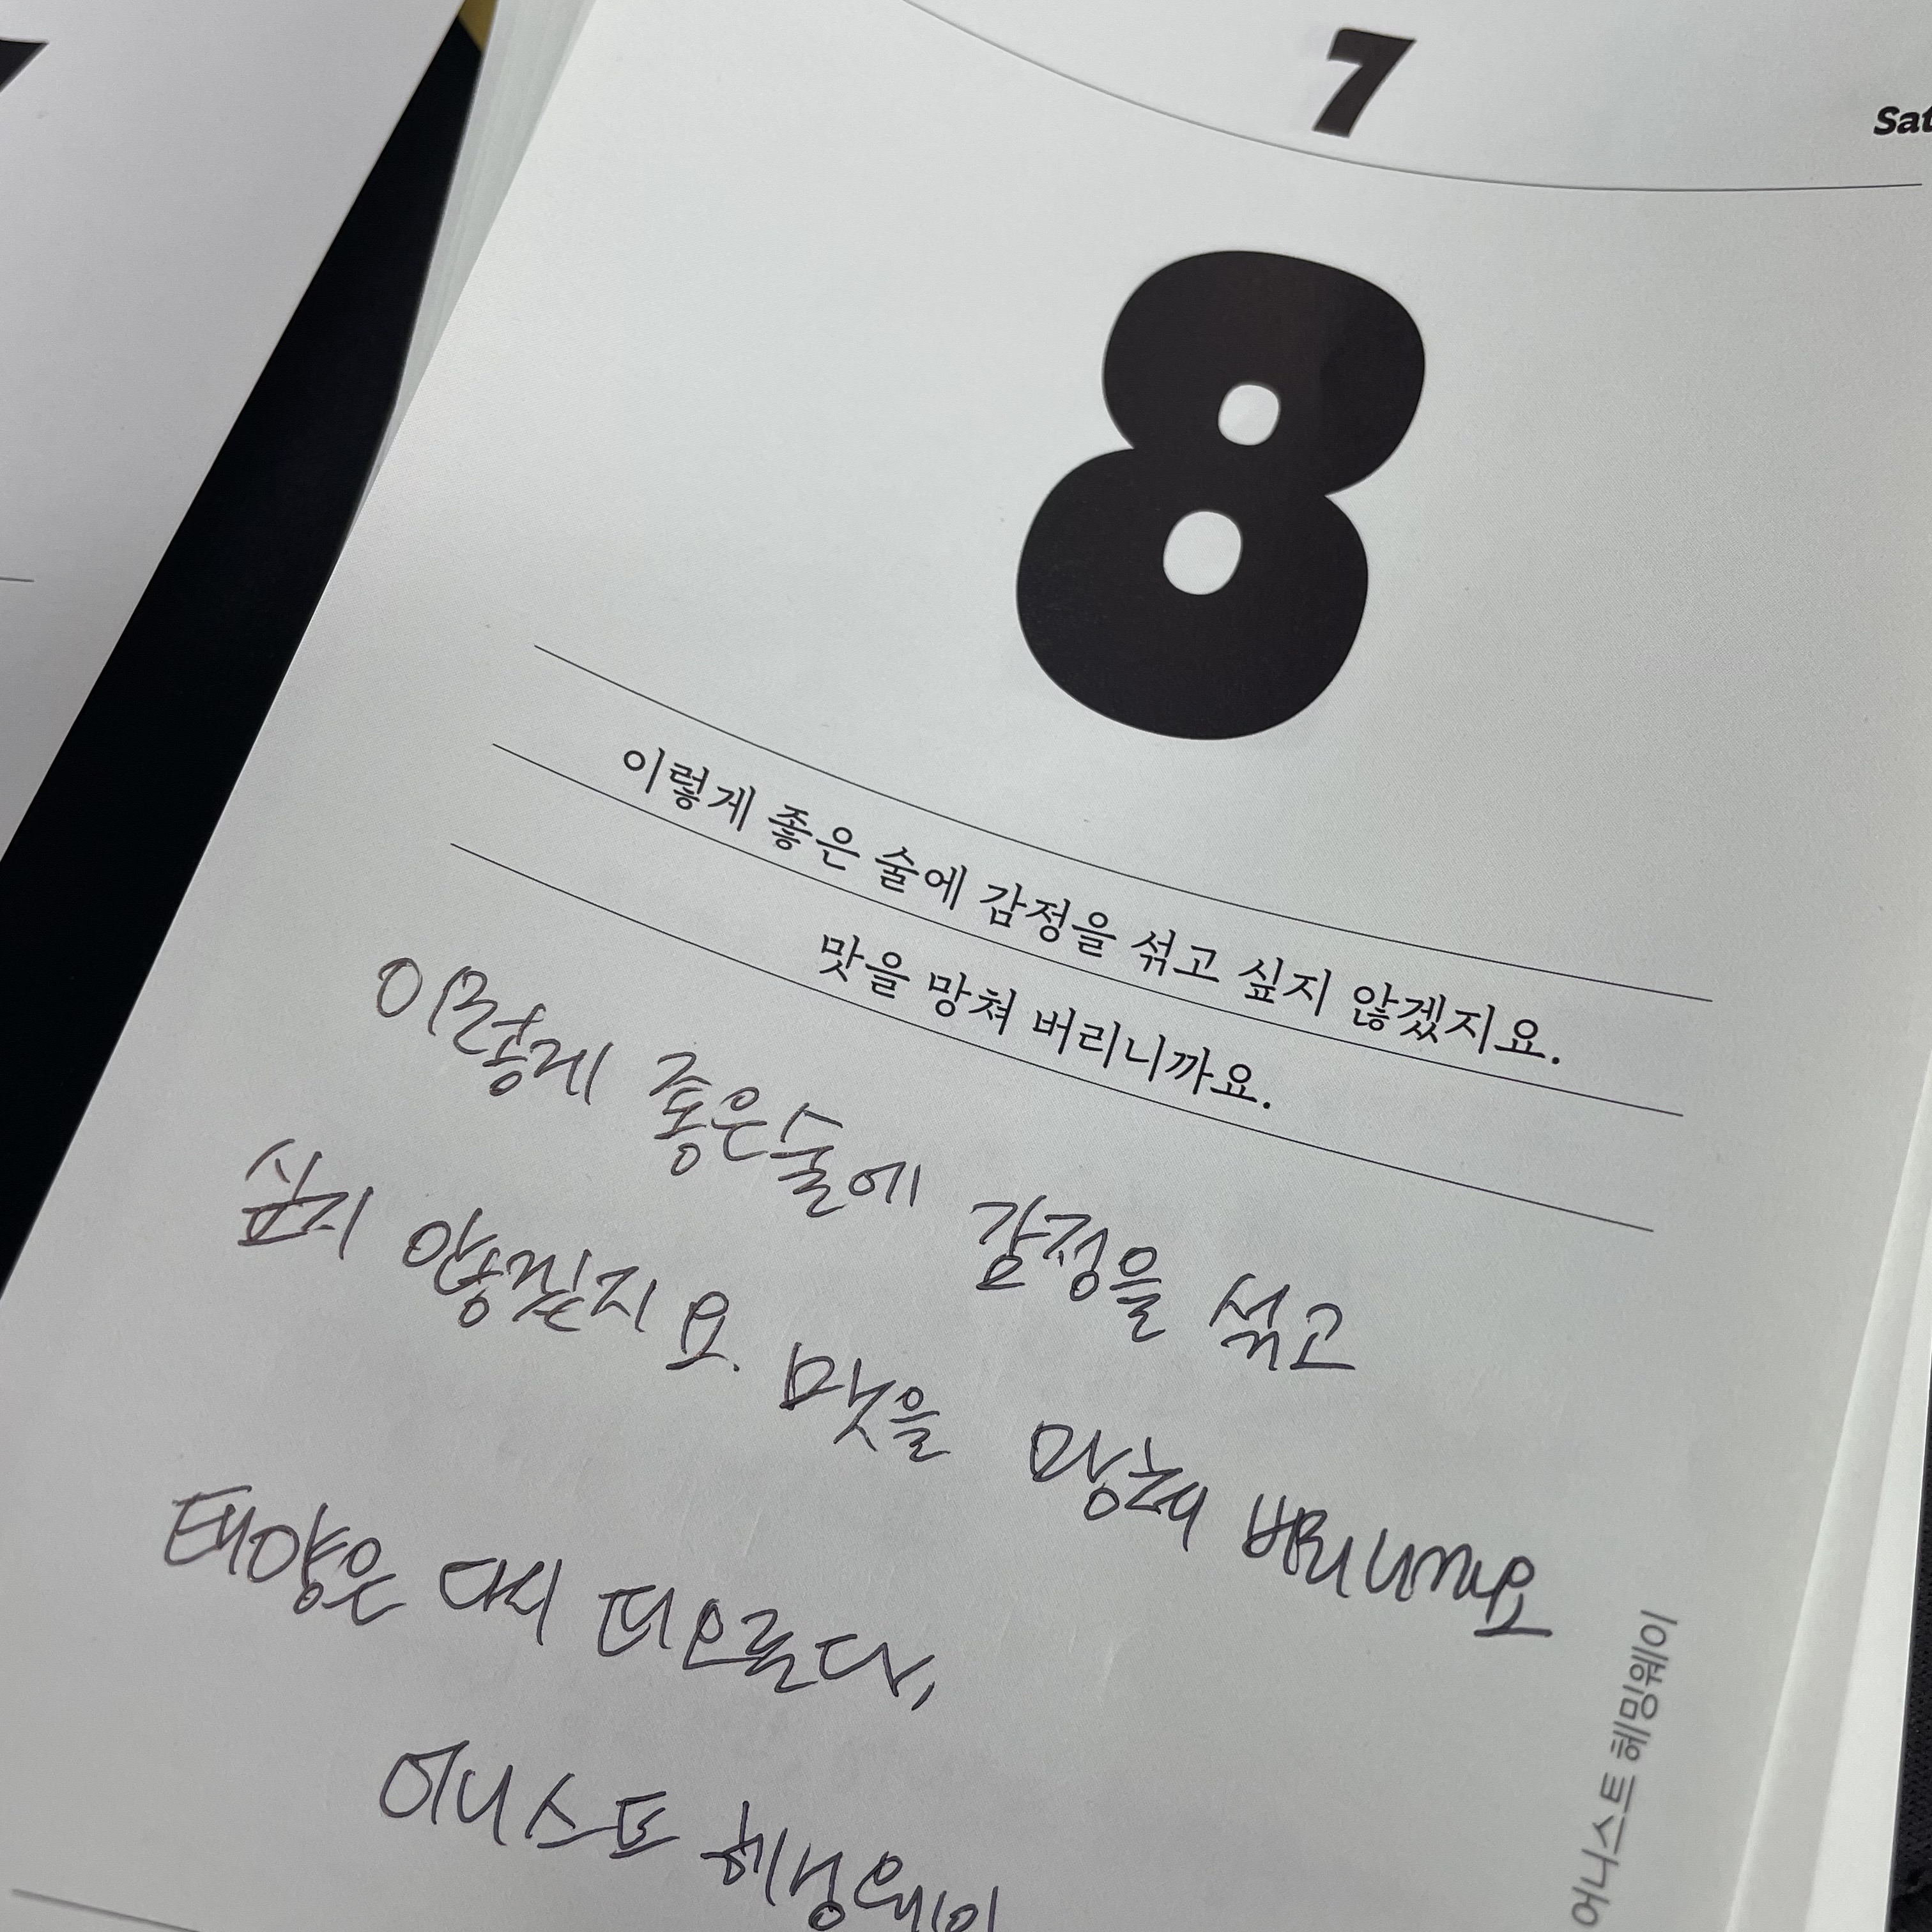 7
Sat
8
이렇게 좋은 술에 감정을 섞고 싶지 않겠지요.
맛을 망쳐 버리니까요.
이렇게 좋은 술에 감정을 섞고
싶지 않겠지요. 맛을 망쳐 버리니까요
태양은 다시 떠오른다,
어니스트 헤밍웨이
어니스트 헤밍웨이